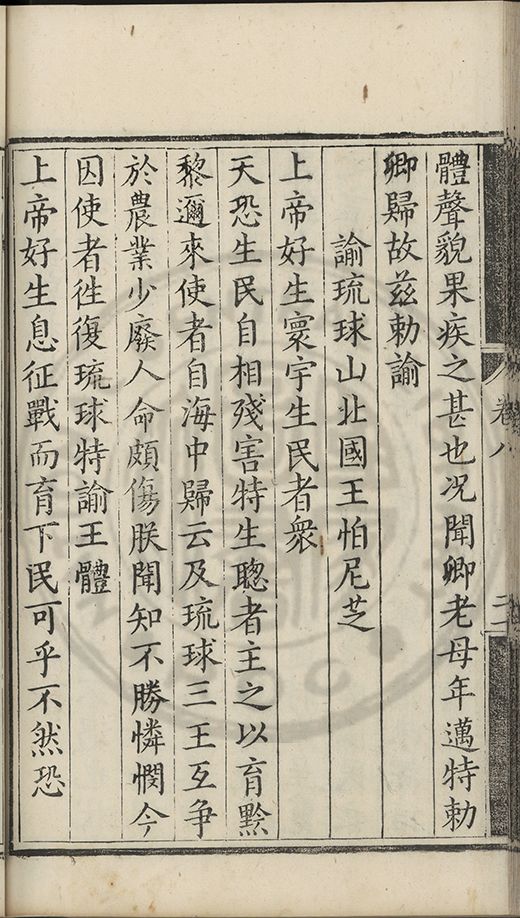 體聲貌果疾之甚也况聞卿老母年邁特勅
卿歸故茲勅諭
諭琉球山北國王怕尼芝
上帝好生寰宇生民者衆
天恐生民自相殘害特生聰者主之以育黔
黎邇來使者自海中歸云及琉球三王互争
於農業少廢人命頗傷朕聞知不勝憐憫今
因使者徃復琉球特諭王體
上帝好生息征戰而育下民可乎不然恐
卷八